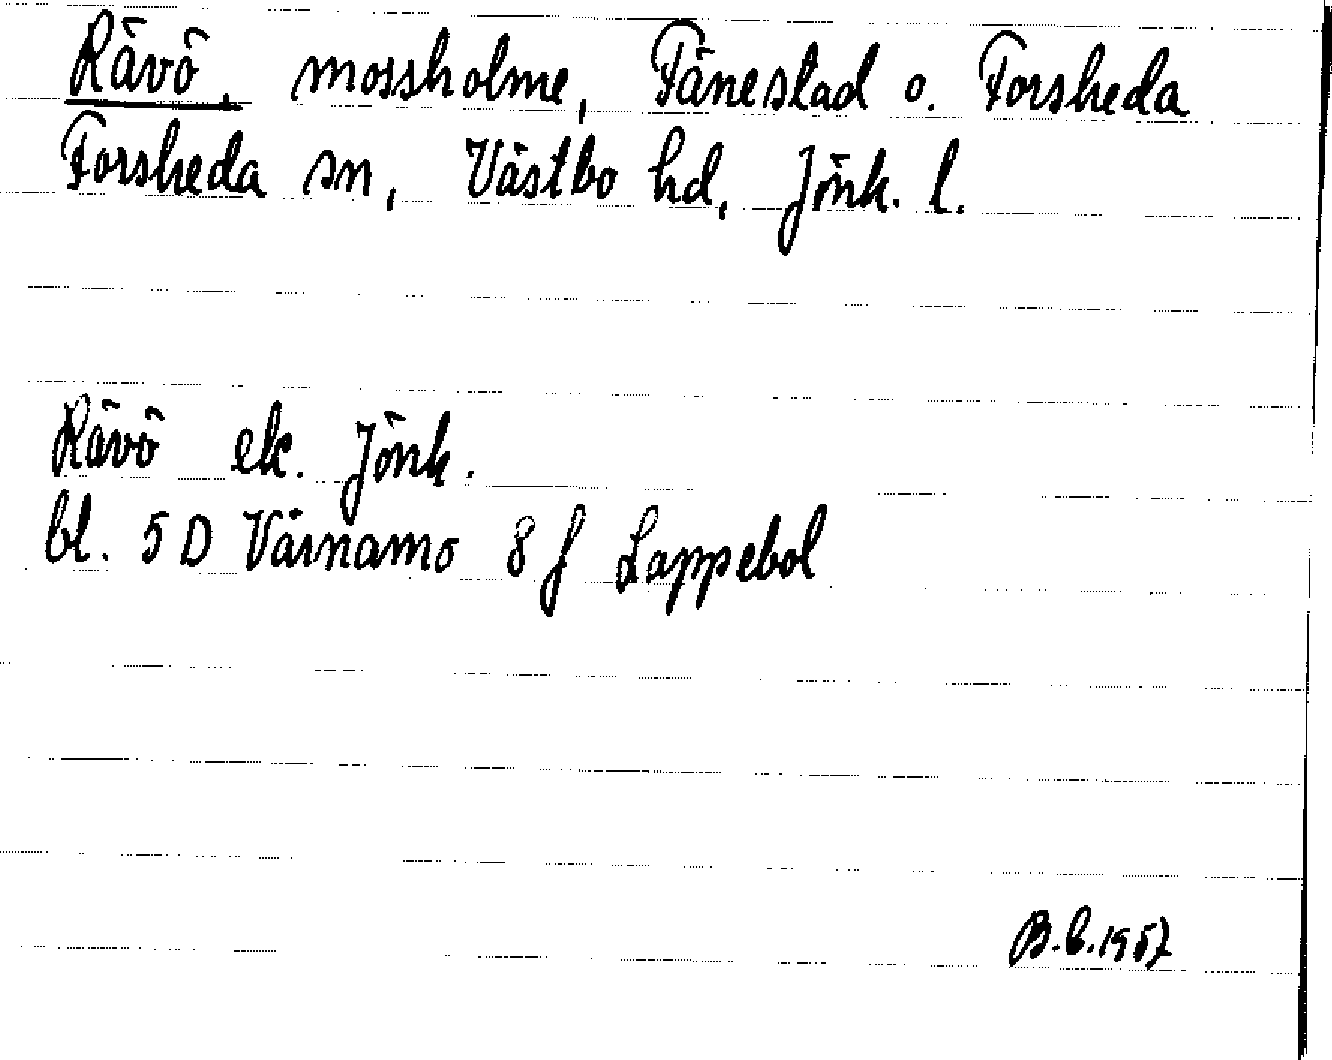 Rävö, mossholme, Tånestad o. Forsheda
Forsheda sn, Västbo hd, Jönk. l.
Rävö ek. Jönk.
bl. 5 D Värnamo 8 f Lappebol
B.C.1957